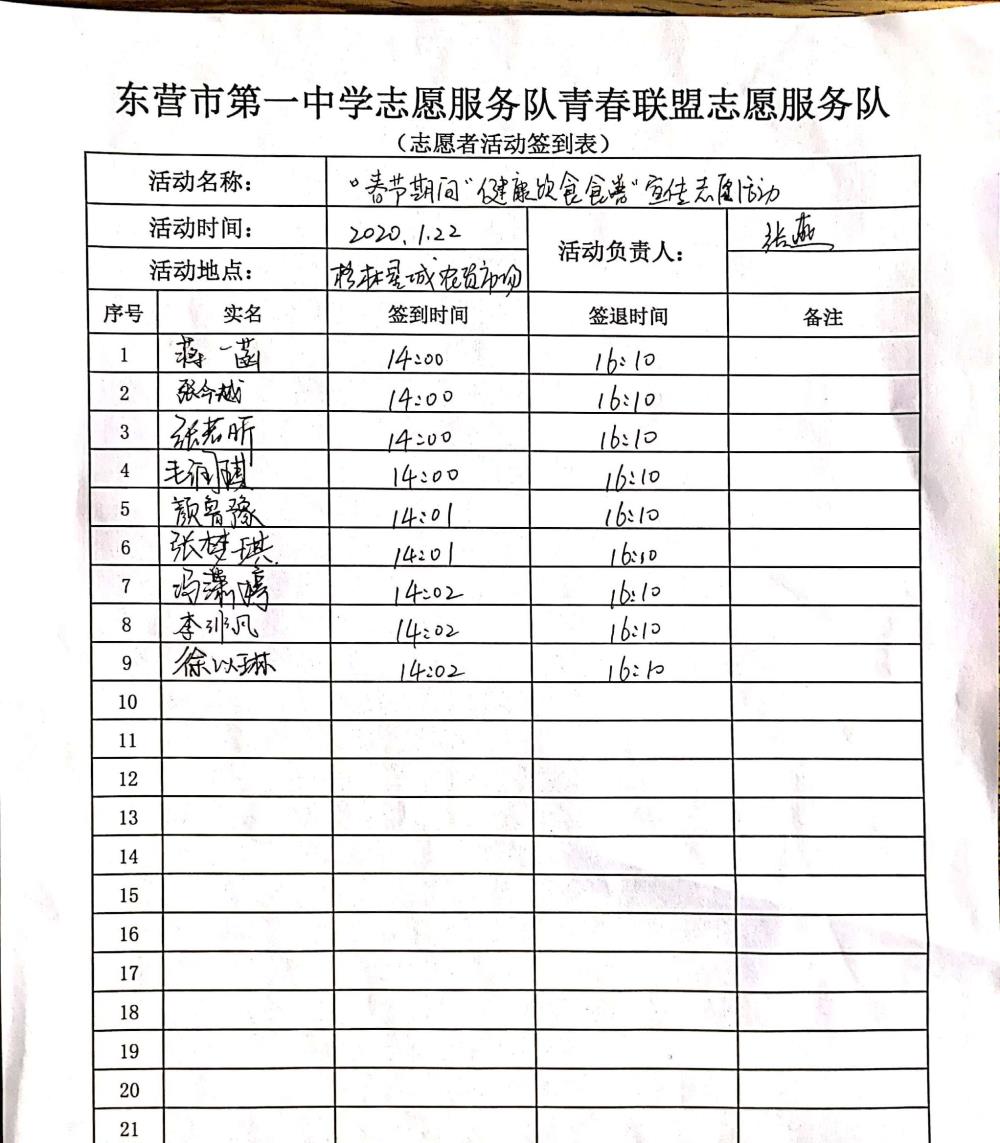 东营市第一中学志愿服务队青春联盟志愿服务队
（志愿者活动签到表）
活动名称： "春节期间"健康饮食食兽"宣传志愿活动
活动时间： 2020.1.22 活动负责人： 张燕
活动地点： 星城农贸市场
序号 实名 签到时间 签退时间 备注
1 蒋一菡 14:00 16:10
2 张今越 14:00 16:10
3 张若昕 14:00 16:10
4 毛润琪 14:00 16:10
5 颜鲁豫 14:01 16:10
6 张梦琪 14:01 16:10
7 冯潇婷 14:02 16:10
8 李 凡 14:02 16:10
9 徐以琳 14:02 16:10
10
11
12
13
14
15
16
17
18
19
20
21